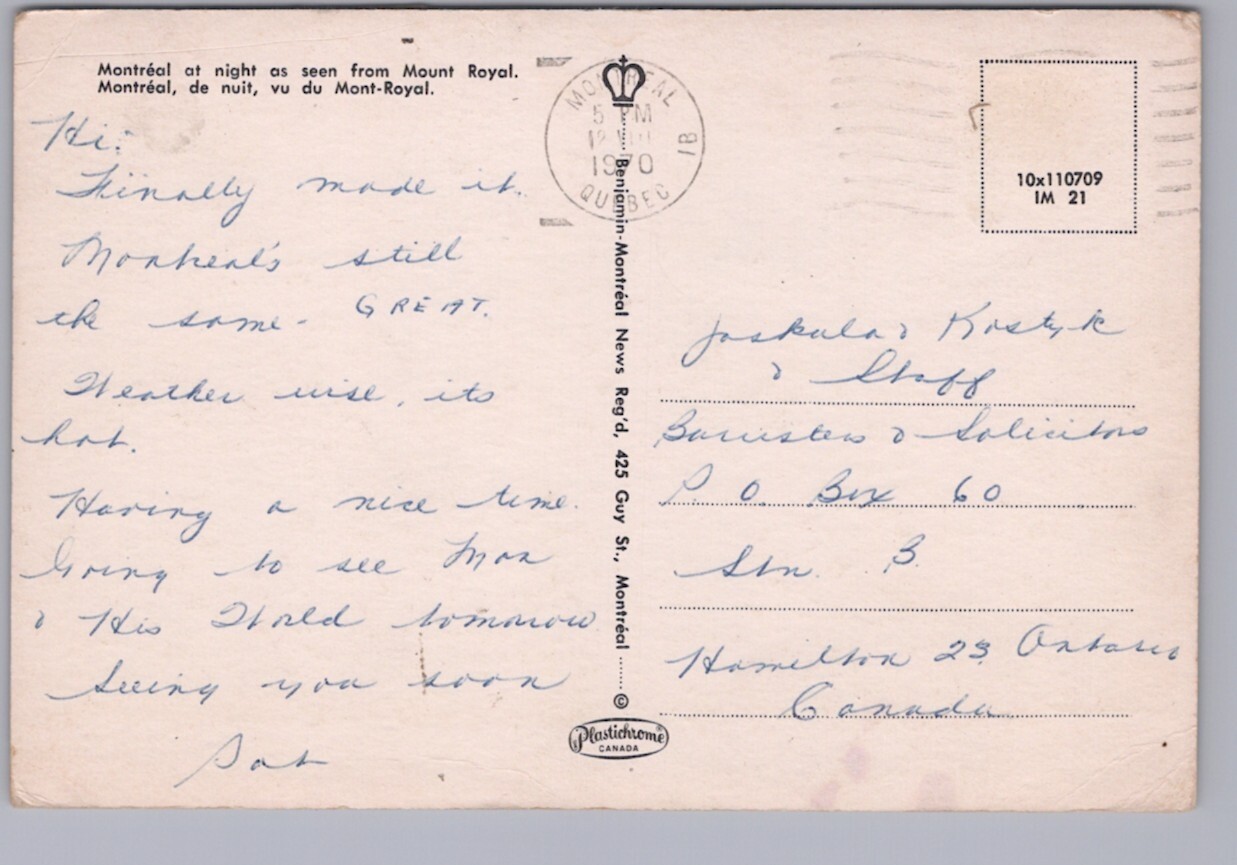 Montréal at night as seen from Mount Royal.
Montréal, de nuit, vu du Mont-Royal.
Hi:
Finally made it.
Montreal's still
the same - GREAT.
Weather wise, its
hot.
Having a nice time.
Going to see Man
& His World tomorrow
Seeing you soon
Pat
MONTREAL
5 PM
1970
QUEBEC
1B
Benjamin-Montréal News Reg'd, 425 Guy St., Montréal ©
Plastichrome®
CANADA
10x110709
IM 21
Jaskula & Kostyk
& Staff
Barristers & Solicitors
P. O. Box 60
Stn. B.
Hamilton 23 Ontario
Canada